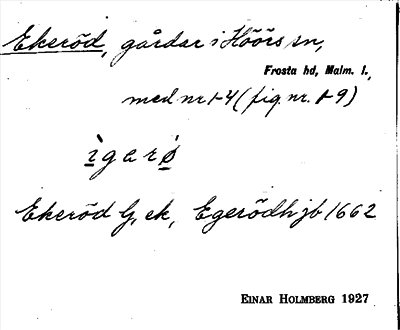 Ekeröd, gårdar i Höörs sn,
Frosta hd, Malm. l.,
med nr 1-4 (fig. nr. 1-9)
ìgarø
Ekeröd G, ek, Egerödh jb 1662
EINAR HOLMBERG 1927